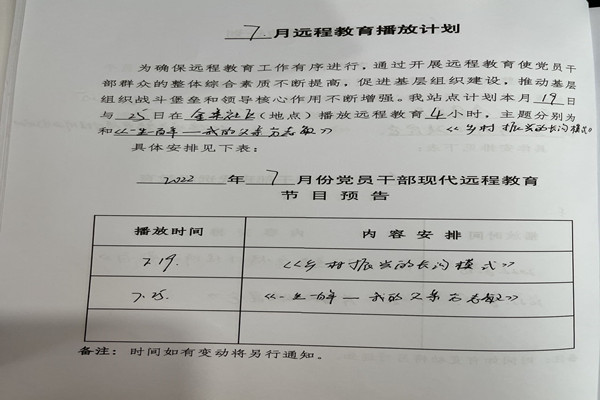 7 月远程教育播放计划
为确保远程教育工作有序进行，通过开展远程教育使党员干
部群众的整体综合素质不断提高，促进基层组织建设，推动基层
组织战斗堡垒和领导核心作用不断增强。我站点计划本月 19 日
与 25 日在 社区（地点）播放远程教育 4 小时，主题分别为
和《一生百年—我的父亲 》 《乡村振兴的长沟模式》
具体安排见下表：
2022 年 7 月份党员干部现代远程教育
节目预告
播放时间 内容安排
7.19. 《乡村振兴的长沟模式》
7.25. 《一生百年—我的父亲 》
备注：时间如有变动将另行通知。